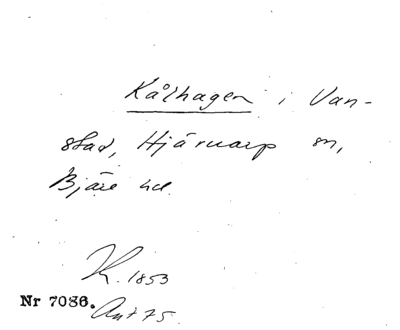 Kålhagen i Van-
stad, Hjärnarp sn,
Bjäre hd.
K. 1853
Nr 7086.
Ant 75.